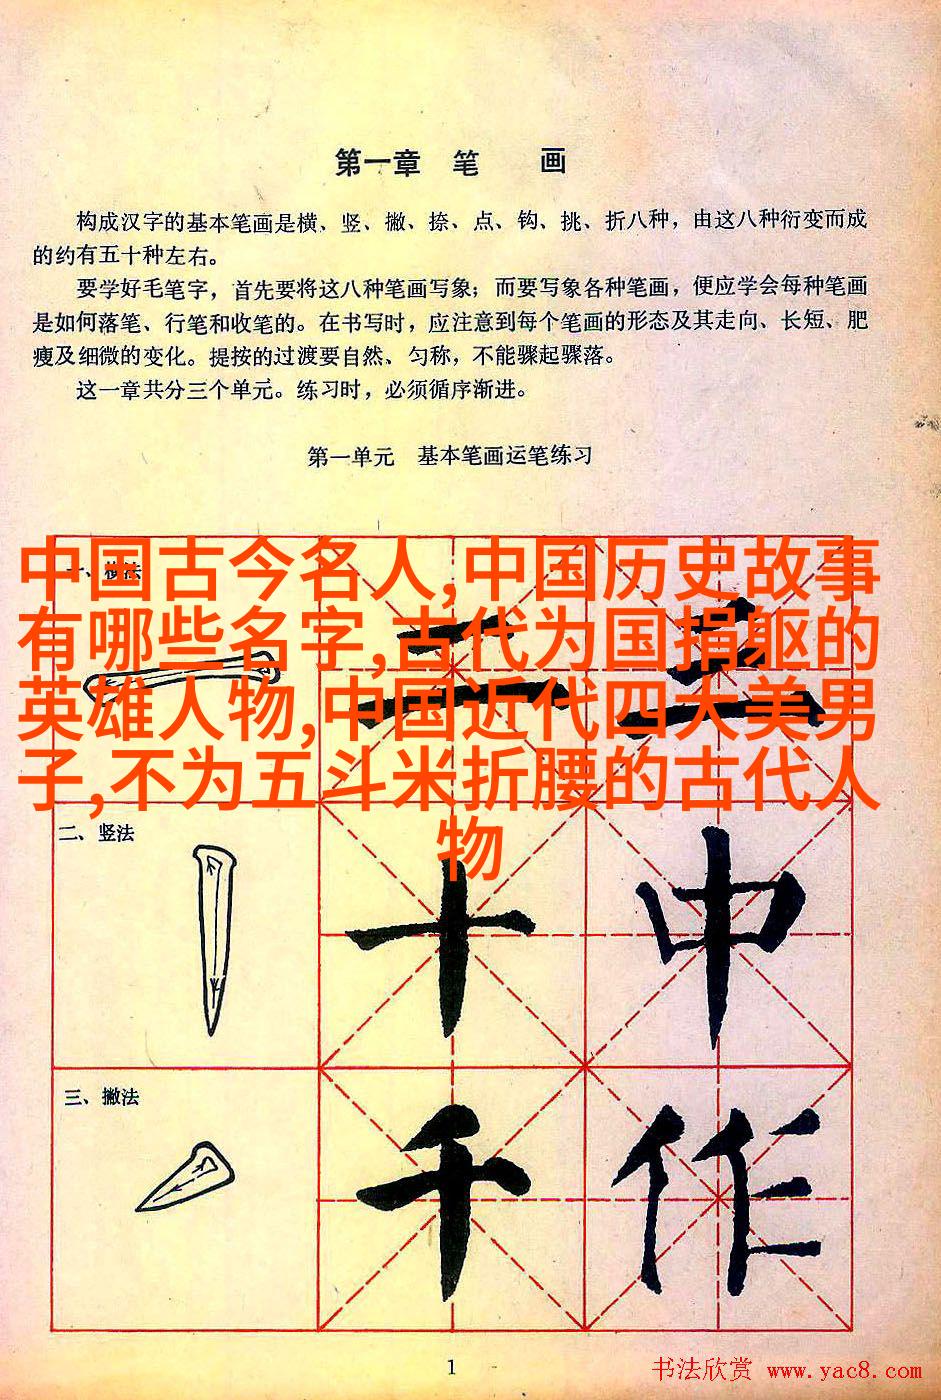 第一章 笔 画
构成汉字的基本笔画是横、竖、撇、捺、点、钩、挑、折八种，由这八种衍变而成
的约有五十种左右。
要学好毛笔字，首先要将这八种笔画写象；而要写象各种笔画，便应学会每种笔画
是如何落笔、行笔和收笔的。在书写时，应注意到每个笔画的形态及其走向、长短、肥
瘦及细微的变化。提按的过渡要自然、匀称，不能骤起骤落。
这一章共分三个单元。练习时，必须循序渐进。
第一单元 基本笔画运笔练习
一、横法
中国古今名人,中国历史故事
有哪些名字,古代为国捐躯的
英雄人物,中国近代四大美男
子,不为五斗米折腰的古代人
物
二 三
二、竖法
十 中
三、撇法
千 作
1
书法欣赏 www.yac8.com